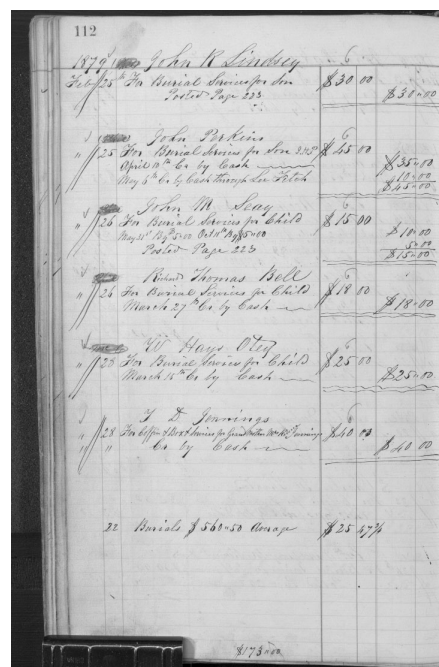 112
1879 John R Lindsey 6
Feb 25th For Burial Services for Son $30 00
Posted Page 223 $30=00
John Perkins 6
" 25 For Burial Services for Son $45 00
April 10th Cr by Cash $35=00
May 6th Cr by Cash through Lee Fitch 10=00
$45=00
John M Seay 6
" 26 For Burial Services for Child $15 00
May 11th By $5=00 Oct 11th By $5=00 $10=00
5=00
Posted Page 223 $15=00
Richard Thomas Bell 6
" 26 For Burial Services for Child $18 00
March 27th Cr by Cash $18=00
W Hays Otey 6
" 28 For Burial Services for Child $25 00
March 15th Cr by Cash $25=00
T D Jennings 6
" 28 For Coffin & Box & Services for Grand Mother Mrs Jennings $40 00
" " Cr by Cash $40=00
22 Burials $560=50 Average $25 47¾
$173=00